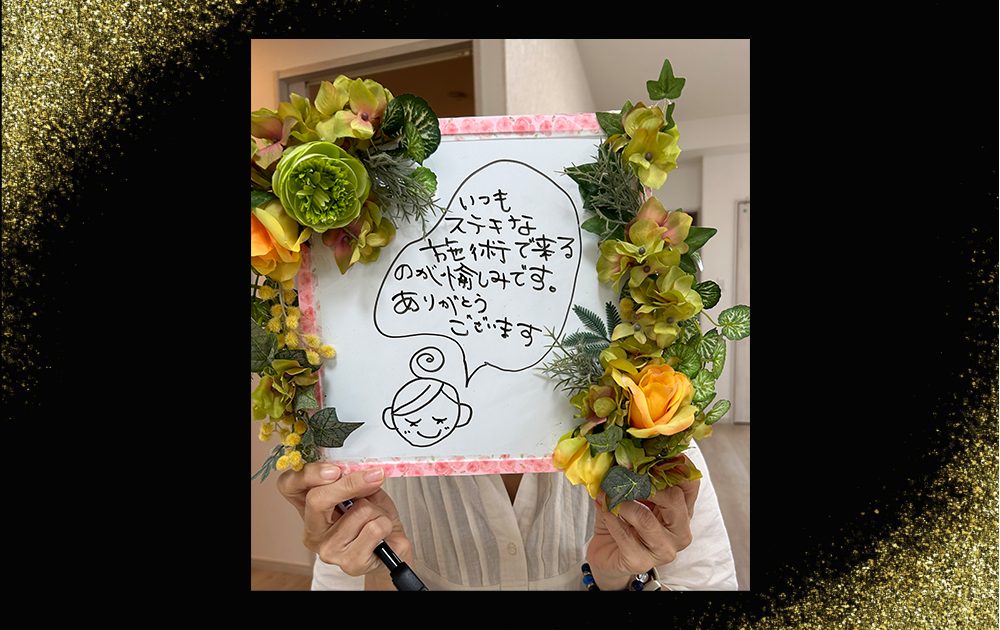 いつも
ステキな
施術で来る
のが愉しみです。
ありがとう
ございます